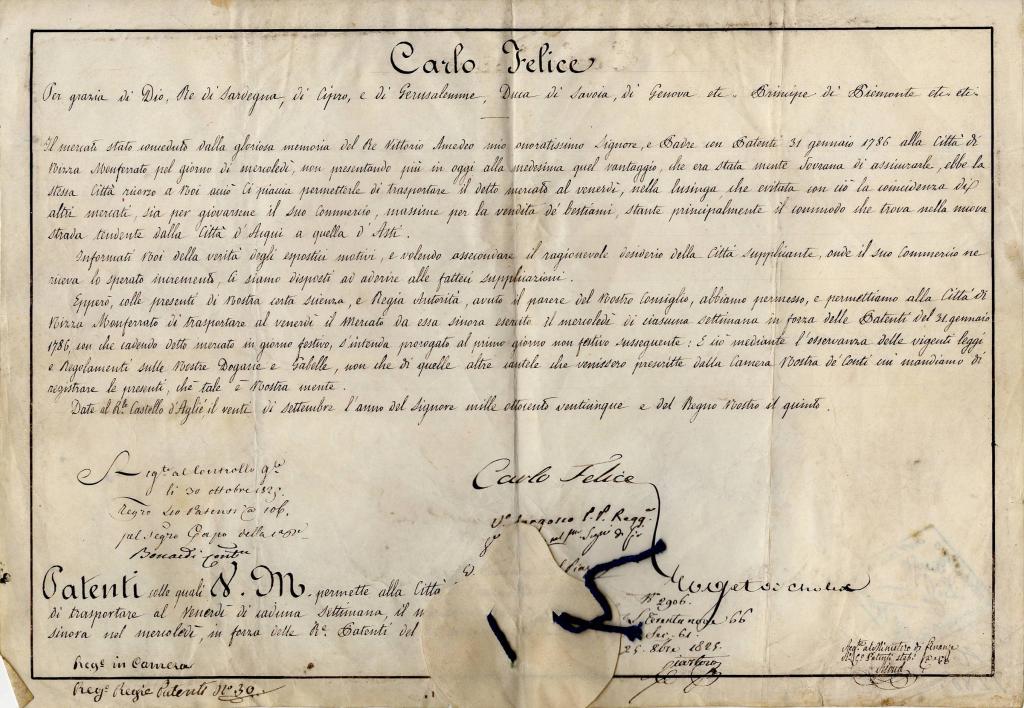 Carlo Felice
Per grazia di Dio, Re di Sardegna, di Cipro, e di Gerusalemme, Duca di Savoia, di Genova etc. Principe di Piemonte etc. etc.
Il mercato stato conceduto dalla gloriosa memoria del Re Vittorio Amedeo mio onoratissimo Signore, e Padre con Patenti 31 gennaio 1786 alla Città di
Nizza Monferrato pel giorno di mercoledì, non presentando più in oggi alla medesima quel vantaggio, che era stata mente Sovrana di assicurarle, ebbe la
stessa Città ricorso a Noi acciò Ci piaccia permetterle di trasportare il detto mercato al venerdì, nella lusinga che evitata con ciò la coincidenza di
altri mercati, sia per giovarsene il suo Commercio, massime per la vendita de' bestiami, stante principalmente il commodo che trova nella nuova
strada tendente dalla Città d'Acqui a quella d'Asti.
Informati Noi della verità degli espostici motivi, e volendo assecondare il ragionevole desiderio della Città supplicante, onde il suo Commercio ne
riceva lo sperato incremento, Ci siamo disposti ad aderire alle fatteci supplicazioni.
Epperò, colle presenti di Nostra certa scienza, e Regia Autorità, avuto il parere del Nostro Consiglio, abbiamo permesso, e permettiamo alla Città di
Nizza Monferrato di trasportare al venerdì il Mercato da essa sinora esercito il mercoledì di ciascuna settimana in forza delle Patenti del 31 gennaio
1786, con che cadendo detto mercato in giorno festivo, s'intenda prorogato al primo giorno non festivo susseguente: E ciò mediante l'osservanza delle vigenti leggi
e Regolamenti sulle Nostre Dogane e Gabelle, non che di quelle altre cautele che venissero prescritte dalla Camera Nostra de' Conti cui mandiamo di
registrare le presenti, che tale è Nostra mente.
Date al R.le Castello d'Agliè il venti di settembre l'anno del Signore mille ottocento venticinque e del Regno Nostro il quinto.
Reg.te al Controllo g.le
li 30 ottobre 1825.
Reg.ro 106.
pel Seg.ro Capo della
Carlo Felice
P.P. Regg.
Patenti colle quali V. M. permette alla Città
di trasportare al Venerdì di caduna settimana, il m
sinora nel mercoledì, in forza delle R.e Patenti del
N.º 2906.
66
Sec. 61.
25. 8bre 1825.
Reg.e in Camera
Reg.o Regie Patenti N.º 30.
Reg.te al Ministero di Finanze